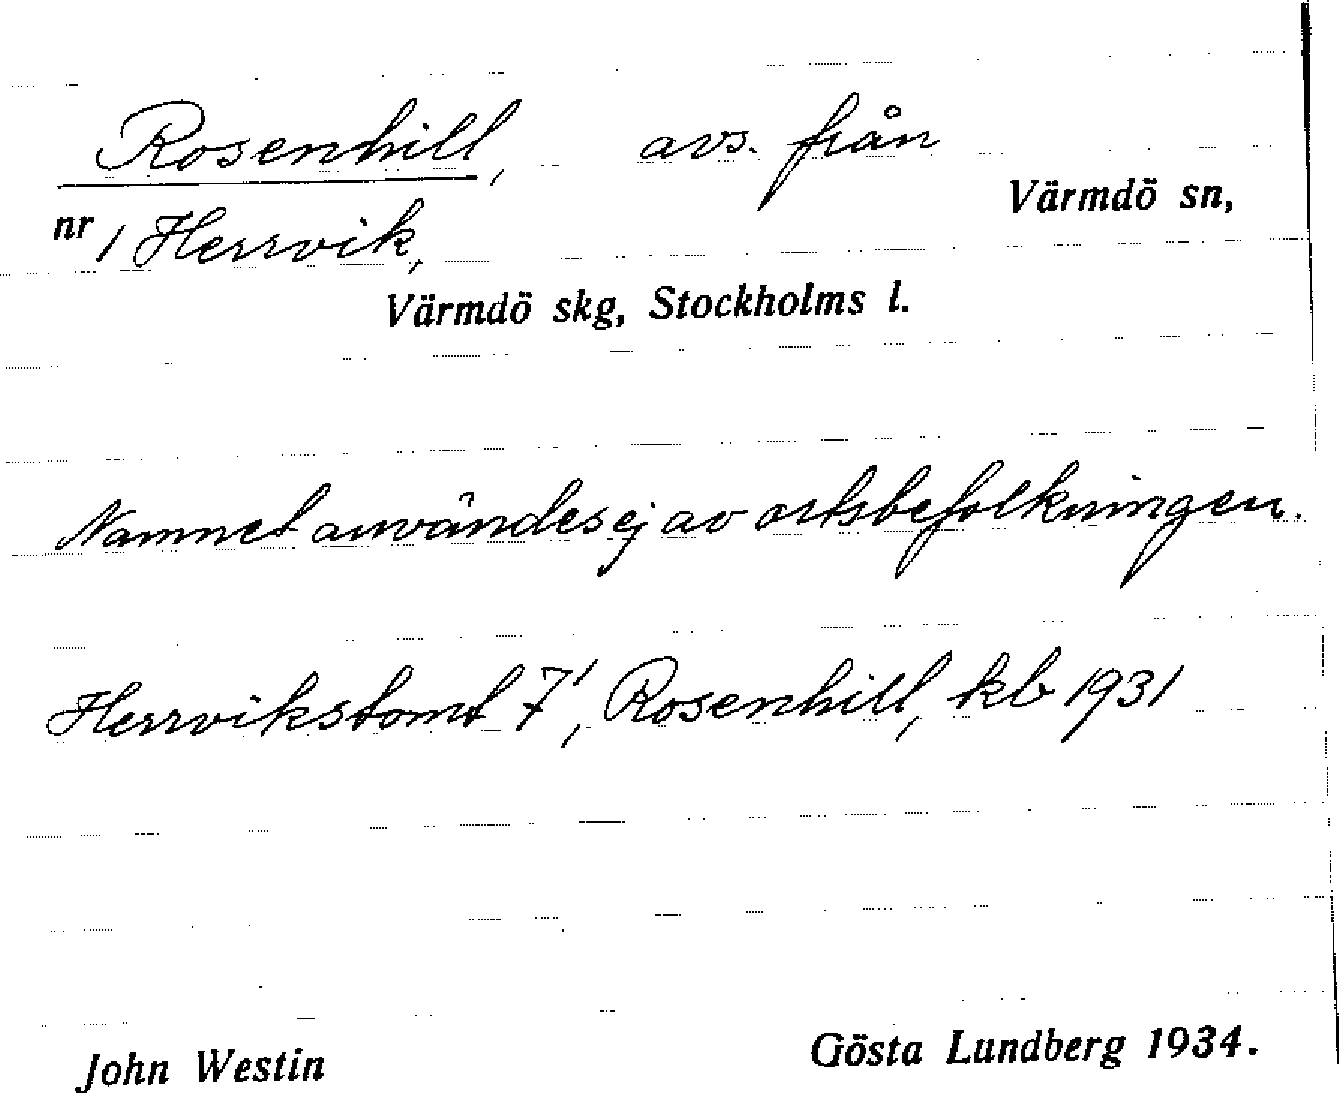 Rosenhill, avs. från
Värmdö sn,
nr 1 Herrvik,
Värmdö skg, Stockholms l.
Namnet användes ej av ortsbefolkningen.
Herrvikstomt 7¹, Rosenhill, kb 1931
John Westin Gösta Lundberg 1934.